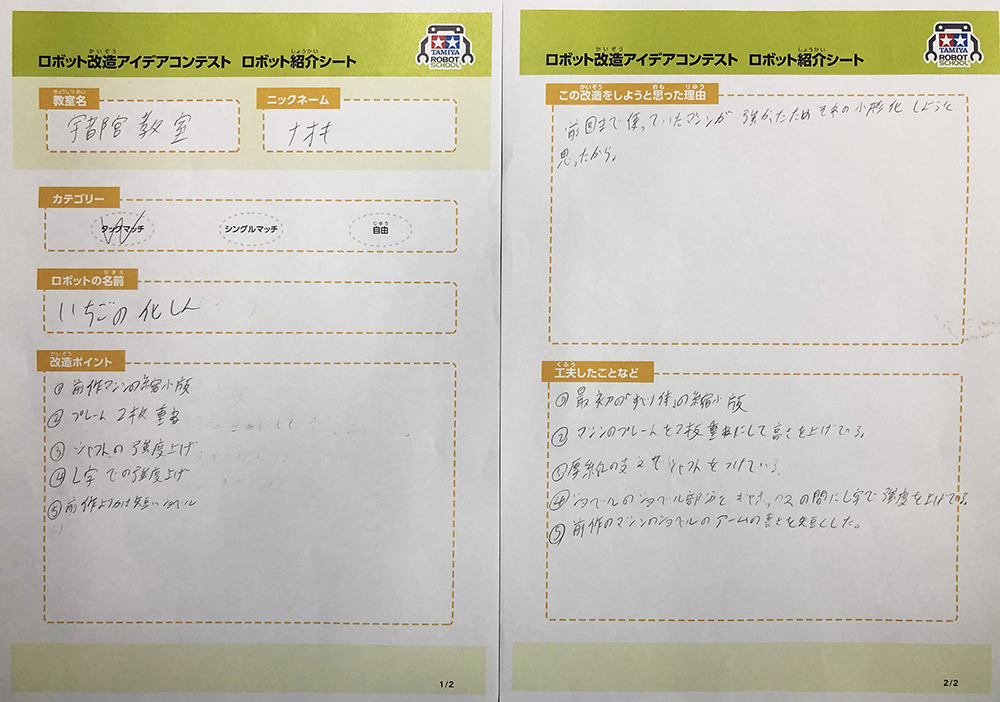 かいぞう しょうかい
ロボット改造アイデアコンテスト ロボット紹介シート
TAMIYA
ROBOT
SCHOOL
きょうしつめい
教室名
宇都宮教室
ニックネーム
ナオキ
カテゴリー
タッグマッチ
シングルマッチ
じゆう
自由
なまえ
ロボットの名前
いちごの化しん
かいぞう
改造ポイント
① 前作マシンの縮小版
② プレート2枚重ね
③ シャフトの強度上げ
④ L字での強度上げ
⑤ 前作よりかは短いショベル
1/2
かいぞう しょうかい
ロボット改造アイデアコンテスト ロボット紹介シート
TAMIYA
ROBOT
SCHOOL
かいぞう おも りゆう
この改造をしようと思った理由
前回まで使っていたマシンが強かったためそれの小形化しようと
思ったから。
くふう
工夫したことなど
① 最初の の縮小版
② マシンのプレートを2枚重ねにして高さを上げている。
③ の支えでシャフトをつけている。
④ ショベルのショベル部分とギヤボックスの間にL字で強度を上げている。
⑤ 前作のマシンのショベルのアームの長さを短くした。
2/2